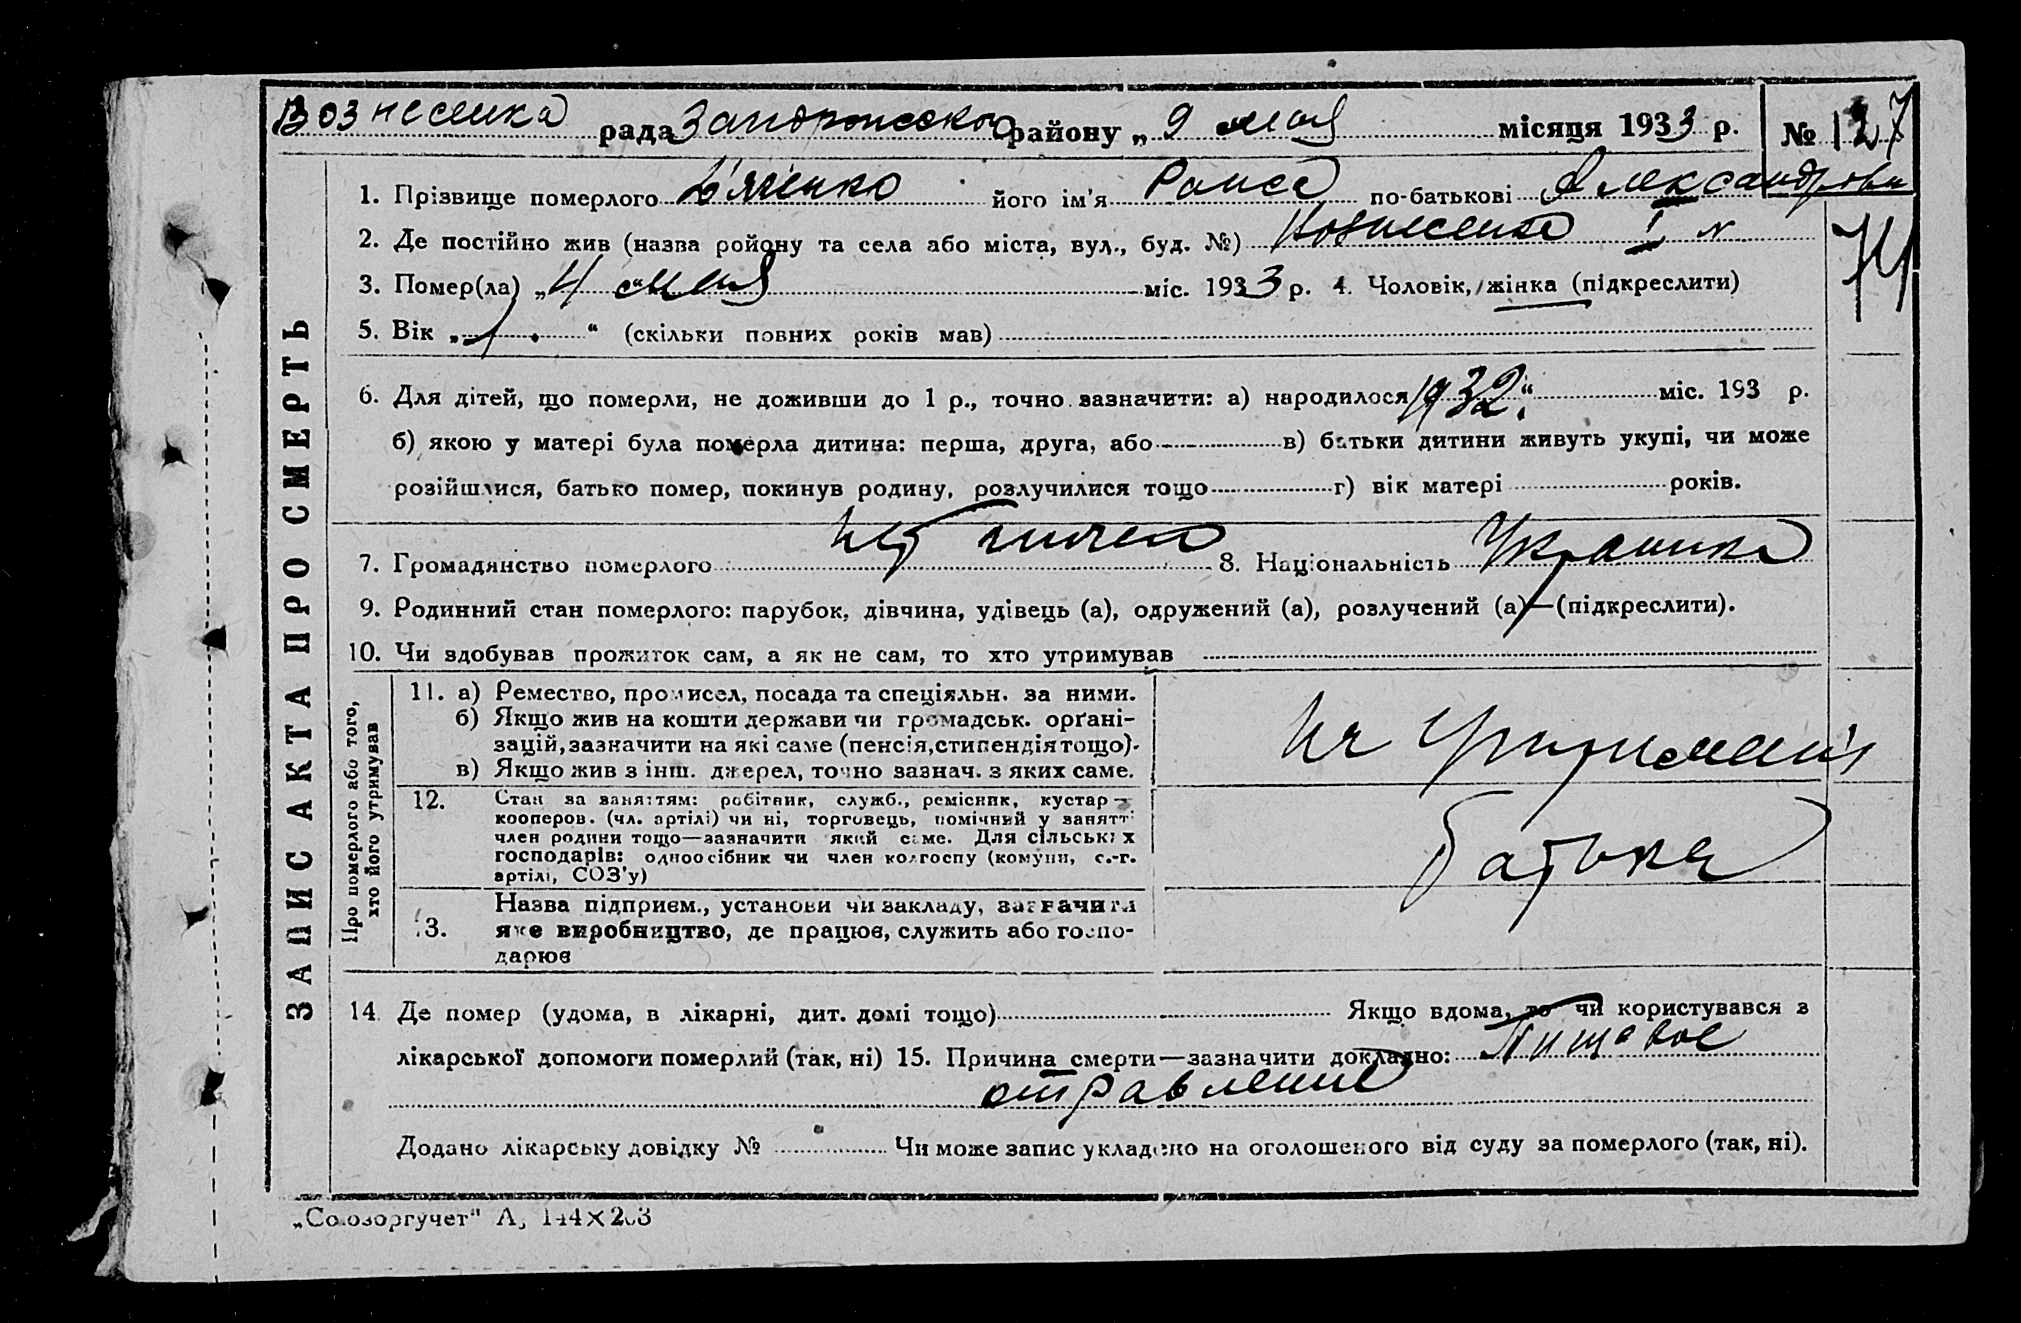 Вознесенка рада Запорожского району „ 9 мая місяця 1933 р. № 127
1. Прізвище померлого його ім'я Раиса по-батькові Александровн
74
2. Де постійно жив (назва ройону та села або міста, вул., буд. №) Вознесенка I
3. Помер(ла) „4“ мая міс. 1933 р. 4. Чоловік, жінка (підкреслити)
5. Вік „1.“ (скільки повних років мав)
6. Для дітей, що померли, не доживши до 1 р., точно зазначити: а) народилося 1932 “ міс. 193 р.
б) якою у матері була померла дитина: перша, друга, або в) батьки дитини живуть укупі, чи може
розійшлися, батько помер, покинув родину, розлучилися тощо г) вік матері років.
7. Громадянство померлого 8. Національність Украинка
9. Родинний стан померлого: парубок, дівчина, удівець (а), одружений (а), розлучений (а)—(підкреслити).
10. Чи здобував прожиток сам, а як не сам, то хто утримував
ЗАПИС АКТА ПРО СМЕРТЬ
Про померлого або того,
хто його утримував
11. а) Ремество, промисел, посада та спеціяльн. за ними.
б) Якщо жив на кошти держави чи громадськ. орґані-
зацій, зазначити на які саме (пенсія, стипендія тощо).
в) Якщо жив з інш. джерел, точно зазнач. з яких саме.
На утриманні
12. Стан за заняттям: робітник, служб., ремісник, кустар—
кооперов. (чл. артілі) чи ні, торговець, помічний у занятті
член родини тощо—зазначити який саме. Для сільських
господарів: одноосібник чи член колгоспу (комуни, с.-г.
артілі, СОЗ'у)
батька
13. Назва підприєм., установи чи закладу, зазначити
яке виробництво, де працює, служить або госпо-
дарює
14. Де помер (удома, в лікарні, дит. домі тощо) Якщо вдома, то чи користувався з
лікарської допомоги померлий (так, ні) 15. Причина смерти—зазначити докладно: Пищевое
отравление
Додано лікарську довідку № Чи може запис укладено на оголошеного від суду за померлого (так, ні).
„Союзоргучет“ А5 144×203